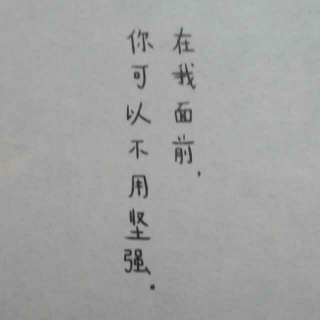 在我面前，
你可以不用坚强。